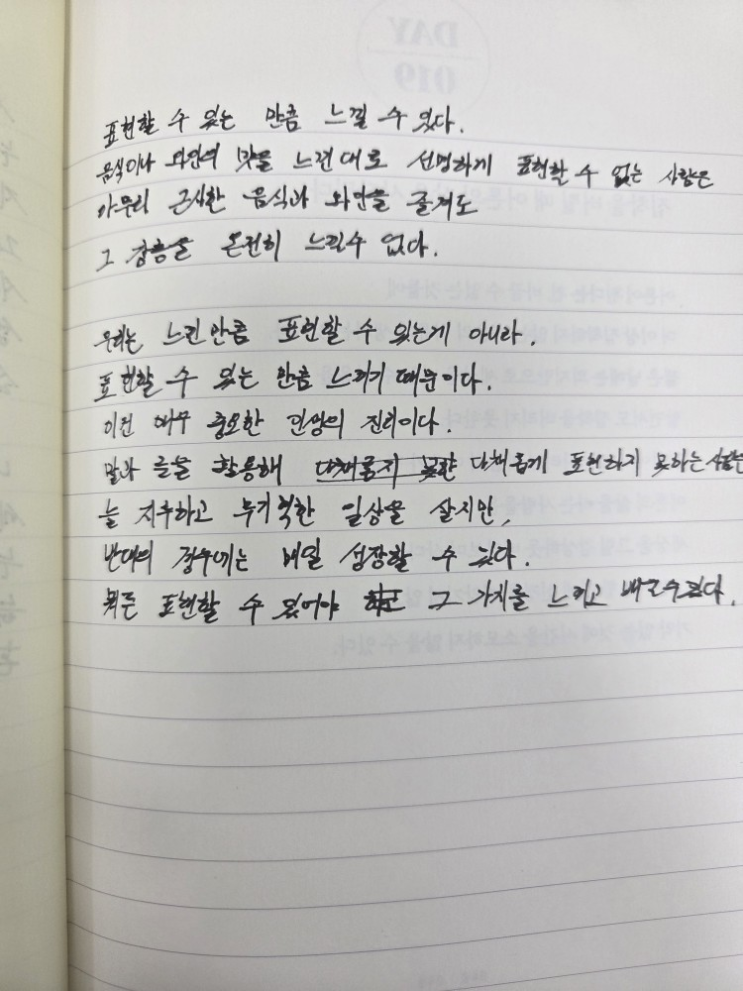 표현할 수 있는 만큼 느낄 수 있다.
음식이나 와인의 맛을 느낀대로 선명하게 표현할 수 없는 사람은
아무리 근사한 음식과 와인을 즐겨도
그 감흥을 온전히 느낄수 없다.
우리는 느낀만큼 표현할 수 있는게 아니라,
표현할 수 있는 만큼 느끼기 때문이다.
이건 매우 중요한 인생의 진리이다.
말과 글을 활용해 다채롭지 못한 다채롭게 표현하지 못하는 사람은
늘 지루하고 무기력한 일상을 살지만,
반대의 경우에는 매일 성장할 수 있다.
뭐든 표현할 수 있어야 그 가치를 느끼고 배울수있다.
DAY
019